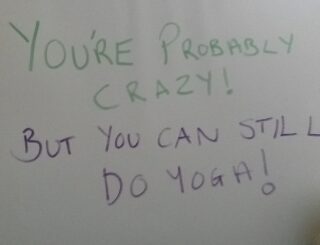 YOU'RE PROBABLY
CRAZY!
BUT YOU CAN STILL
DO YOGA!